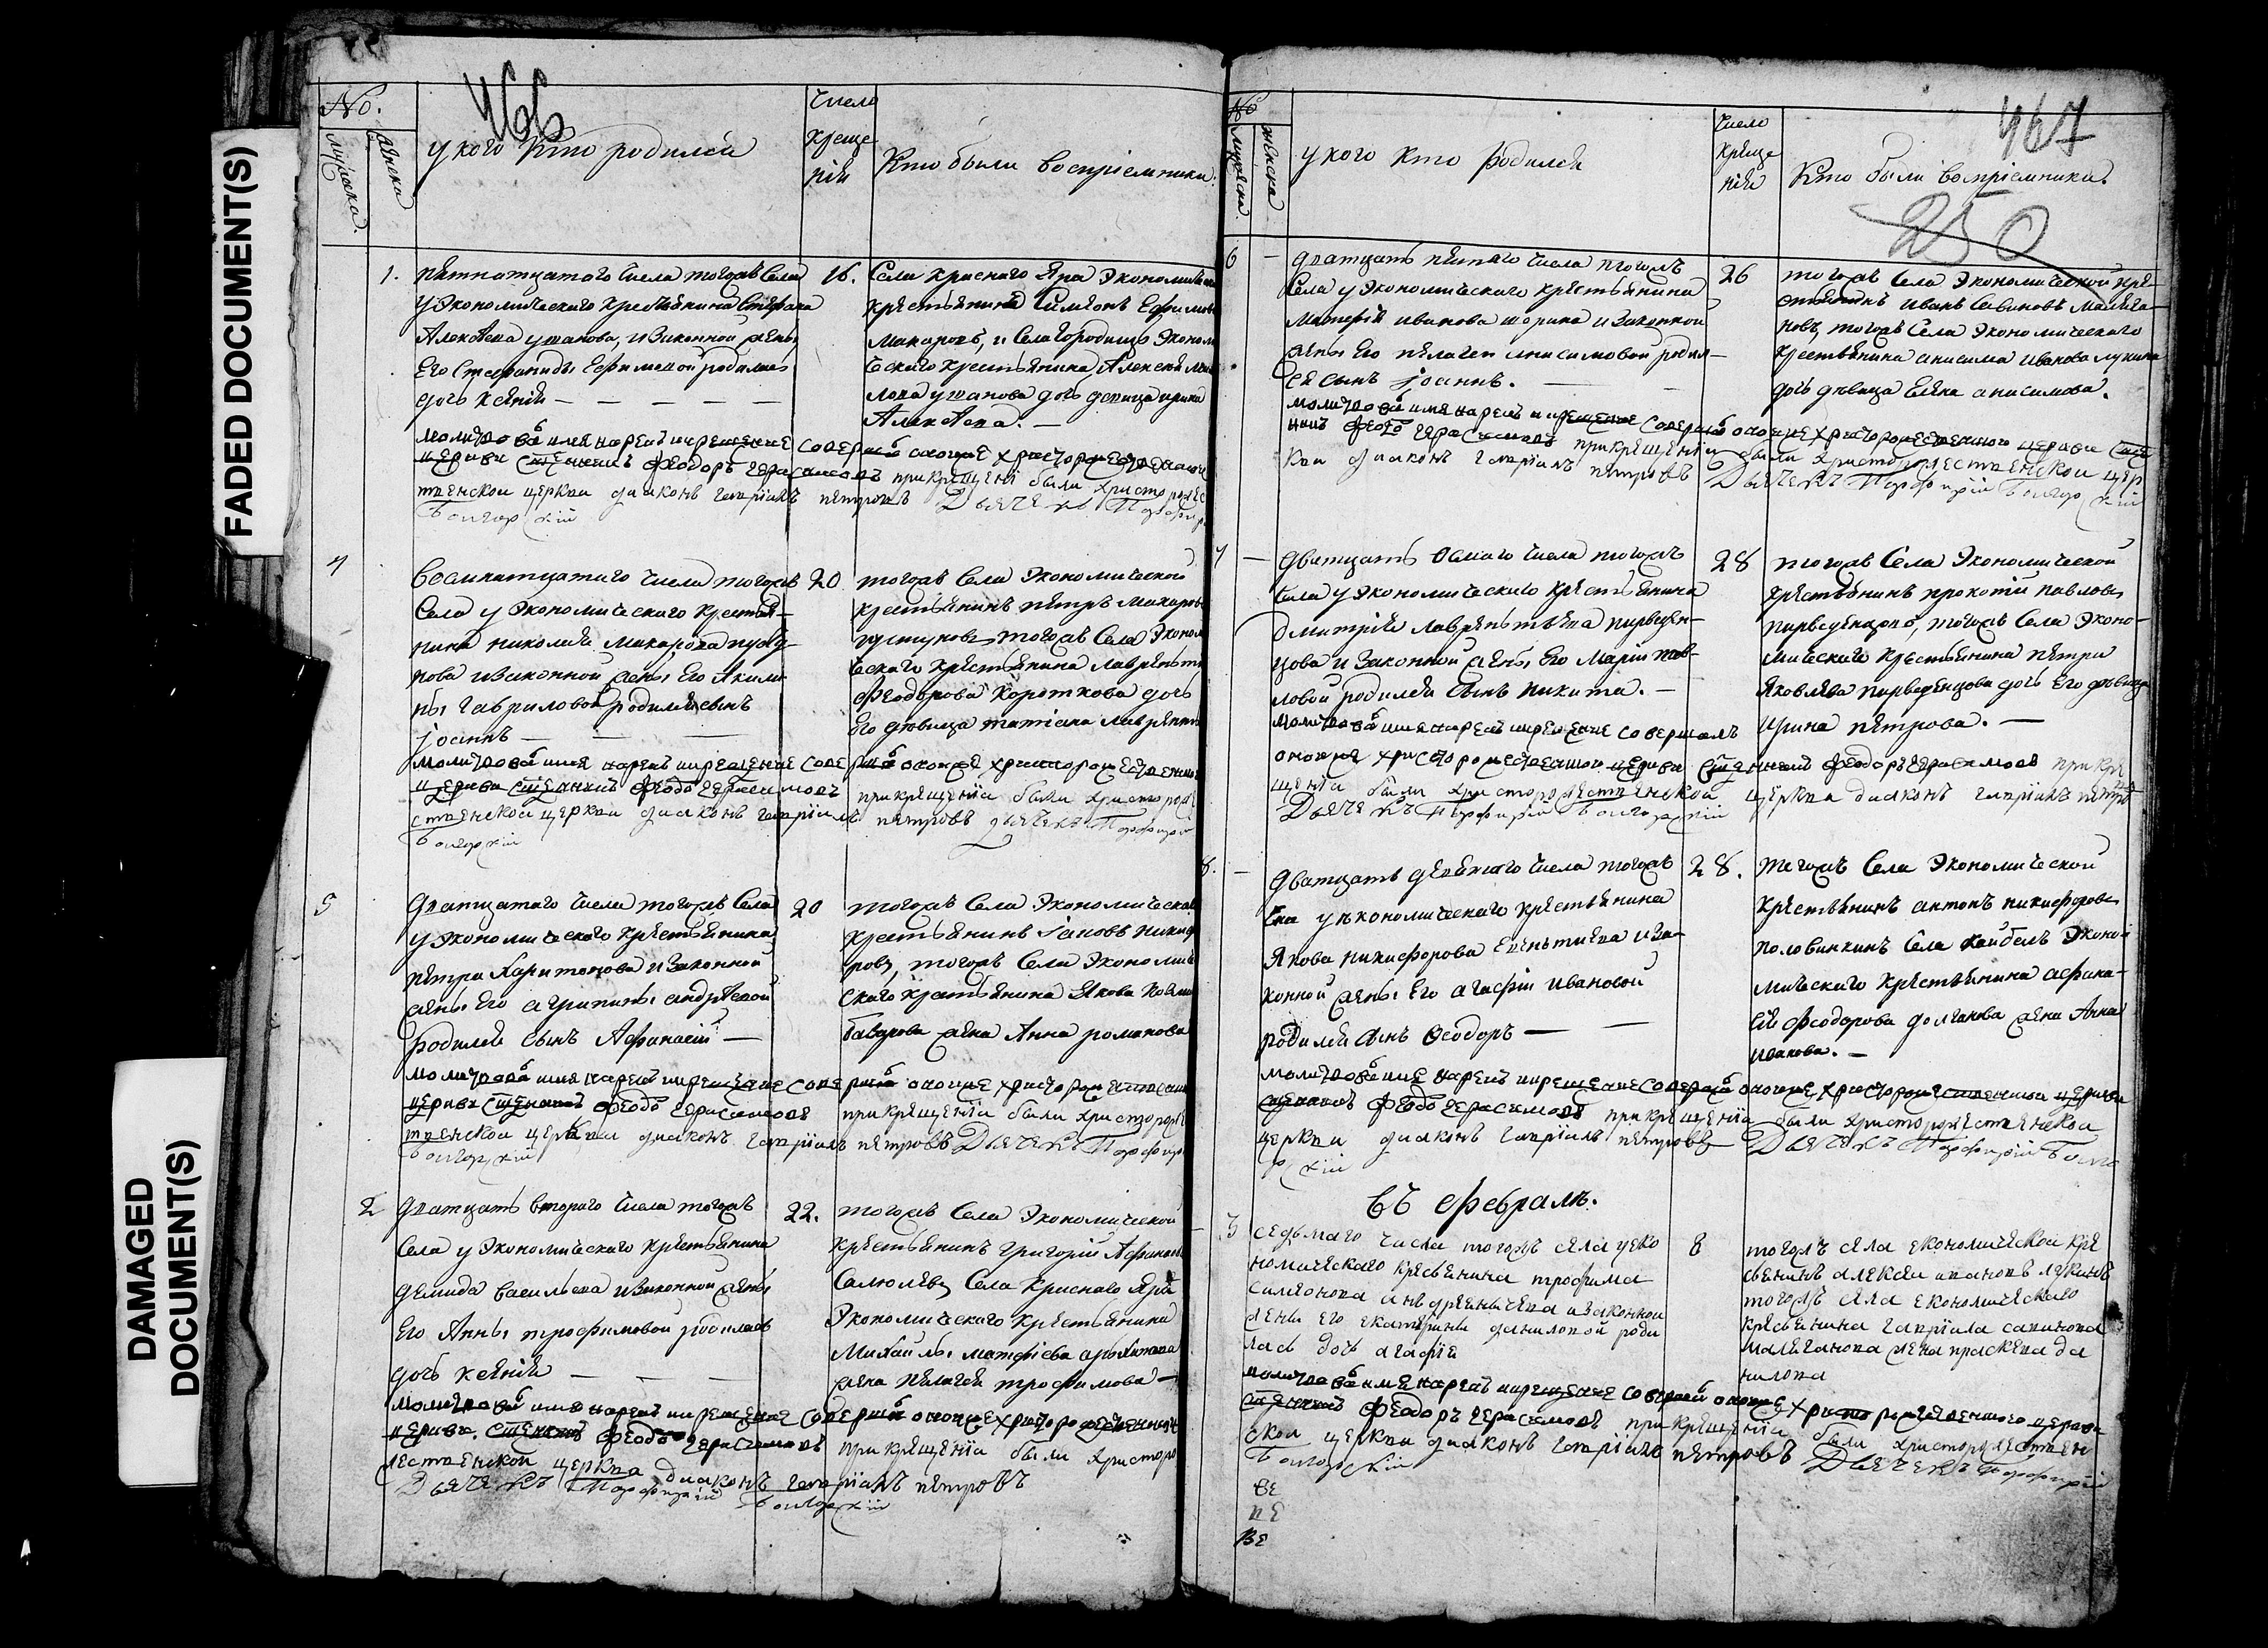 FADED DOCUMENT(S)
DAMAGED
DOCUMENT(S)
466
No.
мужеска
женска
у кого кто родился
Число
креще
нія
Кто были воспріемники.
1.
пятнатцатаго числа тогожъ села
у Экономическаго крестьянина Стефана
Алексѣева уманова, и законной жены
его Стефаниды Ефимовой родилась
дочь Ксенія
16.
Села Краснаго Яра Экономическо
крестьянинъ Симеонъ Ефимовъ
макаровъ, и села городищъ Эконом
ческаго крестьянина Алексея
уманова дочь девица ирина
Алексѣева.
молитвовалъ имя нарекъ и крещение соверш онагоже христорождественной
церкви священникъ феодоръ герасимовъ при крещеніи были христорожес
твенской церкви диаконъ гавріилъ петровъ Дьячекъ Порфир
4
Восемнатцатаго числа тогожъ
Села у Экономическаго крестья-
нина николая макарова
нова и законной жены его Акили-
ны гавриловой родился сынъ
Іоаннъ
20
тогожъ Села Экономической
крестьянинъ петръ макаровъ
тогожъ Села Эконом
ческаго крестьянина лаврентія
Феодорова короткова дочь
его дѣвица татіана лаврентье
молитвовалъ имя нарекъ и крещение совершилъ онагоже христорождественной
церкви священникъ феодоръ герасимовъ при крещеніи были христорожде
ственской церкви диаконъ гавріилъ петровъ дьячекъ Порфирій
5
Дватцатаго числа тогожъ села
у Экономическаго крестьянина
петра Харитонова и законной
жены его агрипины андреевой
родился сынъ Афанасій
20
тогожъ Села Экономической
крестьянинъ Іаковъ никифо
ровъ, тогожъ Села Экономиче
скаго крестьянина Якова
жена Анна романова
молитвовалъ имя нарекъ и крещение совершилъ онагоже христорождественной
церкви священникъ феодоръ герасимовъ при крещеніи были христорожде
ственской церкви диаконъ гавріилъ петровъ Дьячекъ Порфирій
2
Дватцать втораго числа тогожъ
Села у Экономическаго крестьянина
демида васильева и законной жены
его Анны трофимовой родилась
дочь ксенія
22.
тогожъ Села Экономической
крестьянинъ григорій Афанасьевъ
Села Краснаго Яра
Экономическаго крестьянина
Михайлы матфіева
жена пелагея трофимова
молитвовалъ имя нарекъ и крещение совершилъ онагоже христорождественной
церкви священникъ феодоръ герасимовъ при крещеніи были христоро
жественской церкви диаконъ гавріилъ петровъ
Дьячекъ Порфирій
467
250
No
мужеска
женска
у кого кто родился
Число
креще
нія
Кто были воспріемники.
6
дватцать пятаго числа тогожъ
Села у Экономическаго крестьянина
матфія иванова шорина и законной
жены его пелагеи анисимовой родил-
ся сынъ Іоаннъ.
26
тогожъ Села Экономической кре-
стьянинъ иванъ Савиновъ малыга-
новъ, тогожъ Села Экономическаго
крестьянина анисима иванова лукина
дочь дѣвица Елена анисимова.
молитвовалъ имя нарекъ и крещение совершилъ онагоже христорождественной церкви свящ
никъ феодоръ герасимовъ при крещеніи были христорожественской цер
кви диаконъ гавріилъ петровъ Дьячекъ Порфирій
7
дватцать осмаго числа тогожъ
села у Экономическаго крестьянина
дмитрія лаврентьева перведен-
цова и законной жены его маріи пав-
ловой родился сынъ никита.
28
тогожъ Села Экономической
крестьянинъ прокопій павловъ
перведенцовъ, тогожъ Села Эконо-
мическаго крестьянина петра
Яковлева перведенцова дочь его дѣвица
ирина петрова.
молитвовалъ имя нарекъ и крещение совершилъ
онагоже христорождественной церкви священникъ феодоръ герасимовъ при кре
щеніи были христорожественской церкви диаконъ гавріилъ петров
Дьячекъ Порфирій
8.
дватцать девятаго числа тогожъ
Села у економическаго крестьянина
Якова никифорова и за-
конной жены его агафіи ивановой
родился сынъ Ѳеодоръ
28.
тогожъ Села Экономической
крестьянинъ антонъ никифоровъ
половинкинъ Села кайбелъ Эконо-
мическаго крестьянина афана-
сія феодорова долганова жена Анна
иванова.
молитвовалъ имя нарекъ и крещение совершилъ онагоже христорождественной церкви
священникъ феодоръ герасимовъ при крещеніи были христорожественской
церкви диаконъ гавріилъ петровъ Дьячекъ Порфирій
Въ февралѣ.
3
седьмаго числа тогожъ села у еко
номическаго кресьянина трофима
симеонова и законной
жены его екатерины даниловой роди
лась дочь агафіе
8
тогожъ села економической кре
сьянинъ алексеи ивановъ лукинъ
тогожъ села економическаго
кресьянина гавріила савинова
малыганова жена праскева да
нилова
молитвовалъ имя нарекъ и крещение совершилъ онагоже христорождественной церкви
священникъ феодоръ герасимовъ при крещеніи были христорожествен
ской церкви диаконъ гавріилъ петровъ Дьячекъ Порфирій
ве
пе
ве